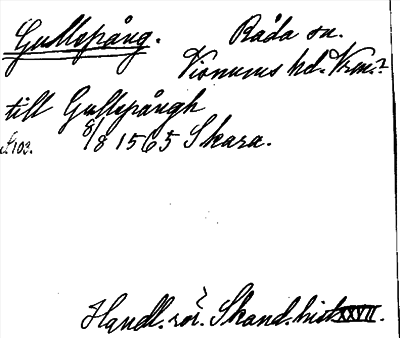 Gullspång. Råda sn.
Visnums hd. Vrm.?
till Gullspångh
S. 102. 8/8 1565 Skara.
Handl. rör. Skand. hist. XXVII.